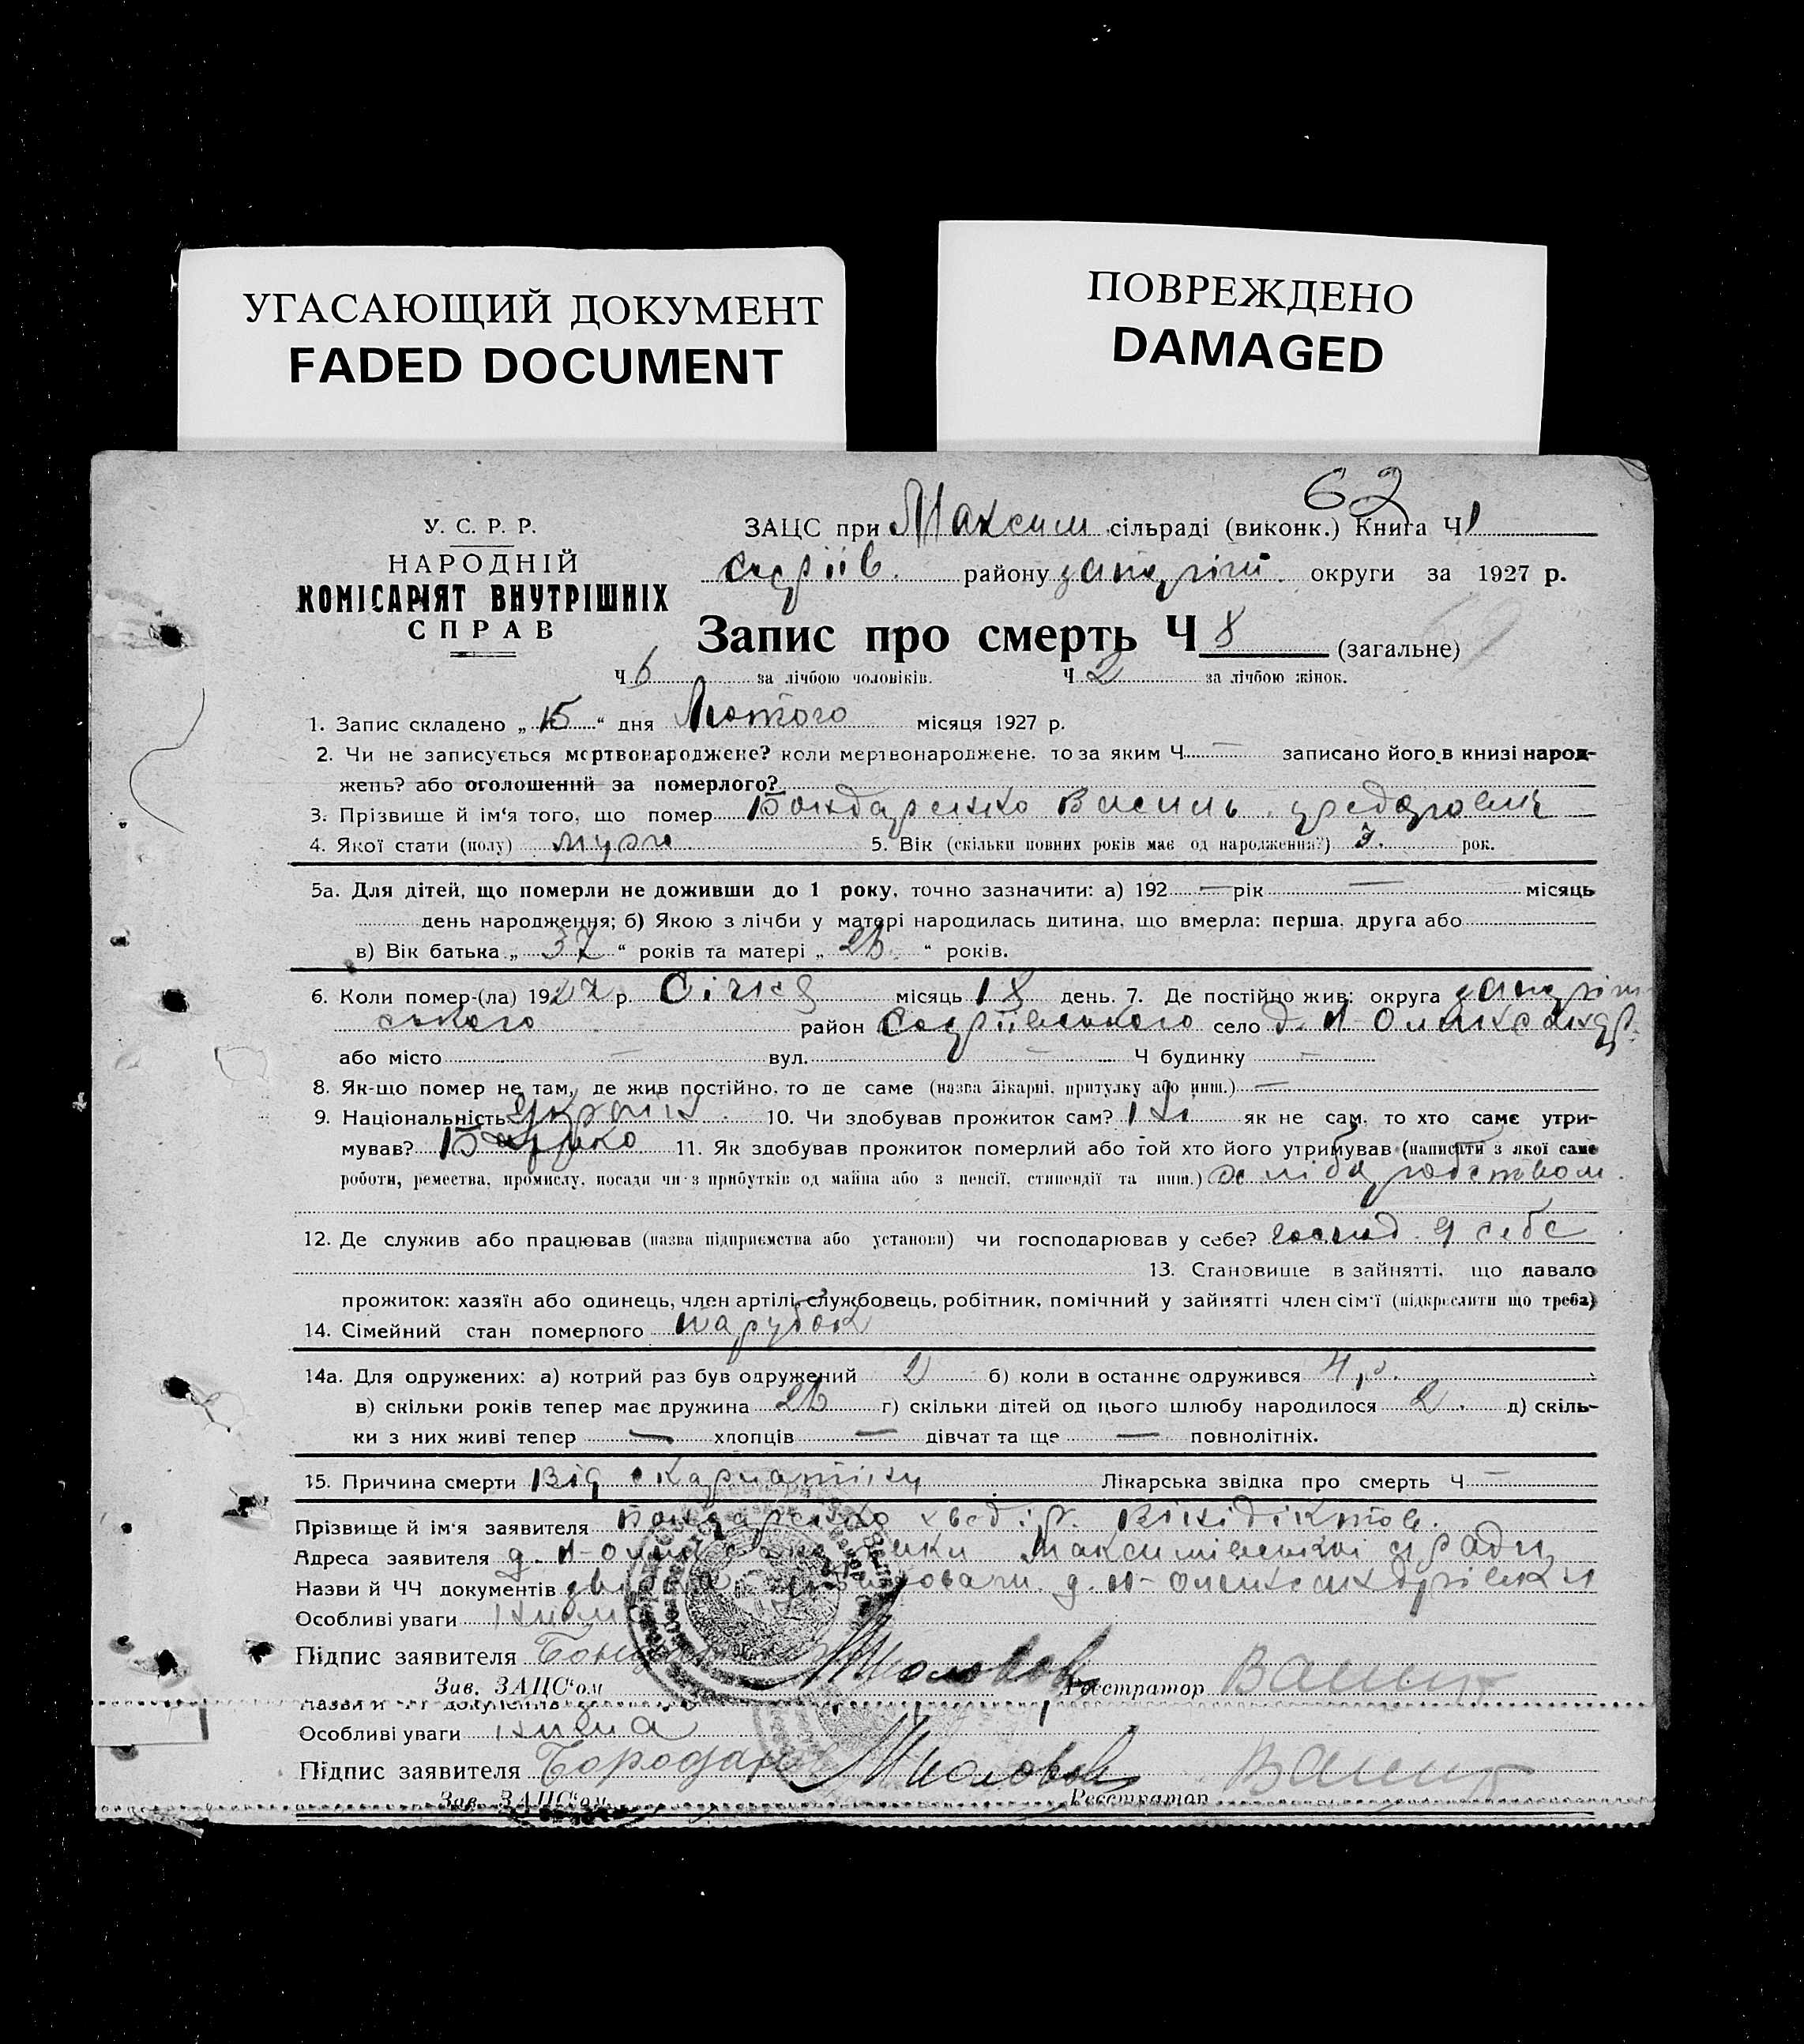 УГАСАЮЩИЙ ДОКУМЕНТ
FADED DOCUMENT
ПОВРЕЖДЕНО
DAMAGED
62
У. С. Р. Р.
НАРОДНІЙ
КОМІСАРІЯТ ВНУТРІШНІХ
СПРАВ
ЗАЦС при Максим сільраді (виконк.) Книга Ч 1
району округи за 1927 р.
Запис про смерть Ч 8 (загальне)
Ч 6 за лічбою чоловіків. Ч 2 за лічбою жінок.
1. Запис складено „ 15 “ дня Лютого місяця 1927 р.
2. Чи не записується мертвонароджене? коли мертвонароджене, то за яким Ч — записано його в книзі народ-
жень? або оголошений за померлого?
3. Прізвище й ім'я того, що помер Бондаренко Василь
4. Якої стати (полу) муж 5. Вік (скільки повних років має од народження?) 3. рок.
5а. Для дітей, що померли не доживши до 1 року, точно зазначити: а) 192 — рік — місяць
день народження; б) Якою з лічби у матері народилась дитина, що вмерла: перша, друга або
в) Вік батька „ 37 “ років та матері „ “ років.
6. Коли помер-(ла) 1927 р. Січня місяць 18 день. 7. Де постійно жив: округа
ського район село
або місто — вул. — Ч будинку —
8. Як-що помер не там, де жив постійно, то де саме (назва лікарні, притулку або инш.) —
9. Національність Україн. 10. Чи здобував прожиток сам? Ні як не сам, то хто саме утри-
мував? Батько 11. Як здобував прожиток померлий або той хто його утримував (написати з якої саме
роботи, ремества, промислу, посади чи з прибутків од майна або з пенсії, стипендії та инш.) хліборобством.
12. Де служив або працював (назва підприємства або установи) чи господарював у себе? господ. у себе
13. Становище в зайнятті, що давало
прожиток: хазяїн або одинець, член артілі, службовець, робітник, помічний у зайнятті член сім'ї (підкреслити що треба)
14. Сімейний стан померлого парубок
14а. Для одружених: а) котрий раз був одружений 2 б) коли в останнє одружився
в) скільки років тепер має дружина г) скільки дітей од цього шлюбу народилося 2. д) скіль-
ки з них живі тепер — хлопців — дівчат та ще — повнолітніх.
15. Причина смерти Від скарлатіни Лікарська звідка про смерть Ч —
Прізвище й ім'я заявителя Бондаренко Хведір.
Адреса заявителя Максимівської
Назви й ЧЧ документів
Особливі уваги нима
Підпис заявителя
Зав. ЗАЦС'ом Реєстратор
Назви й ЧЧ документів
Особливі уваги нима
Підпис заявителя
Зав. ЗАЦС'ом Реєстратор